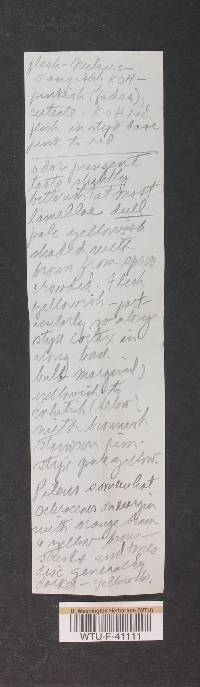 flesh - Melzers -
KOH -
pinkish (fades),
cuticle KOH red,
flesh in stipe base
pink to red
odor pungent
taste slightly
bitterish at most
lamellae dull
pale yellowish
shaded with
brown from spores.
crowded. Flesh
yellowish - part
icularly so along
stipe cortex in
along bad.
bulb margined,
yellowish to
whitish (below)
with brownish
rim.
stipe pale yellow.
Pileus somewhat
ochraceous on margin
with orange brown
a yellow brown
streaks and
disc generally
darker - yellow br.
U. Washington Herbarium (WTU)
WTU-F-41111